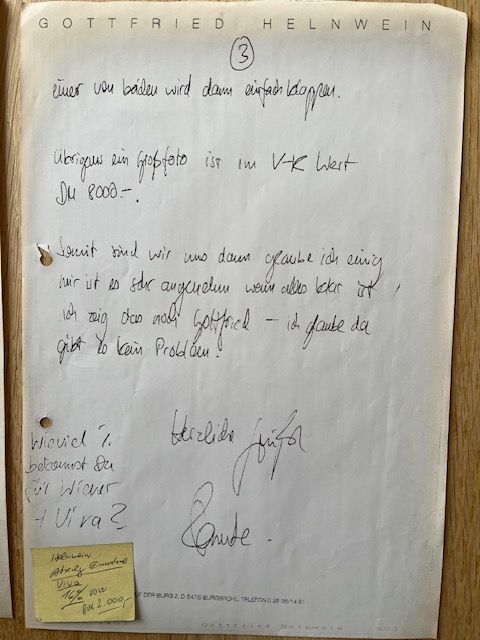 GOTTFRIED HELNWEIN
3
einer von beiden wird dann einfach klappen.
übrigens ein Großfoto ist im V-K Wert
DM 8000.-.
Somit sind wir uns dann glaube ich einig
mir ist es sehr angenehm wenn alles klar ist!
ich zeig das noch Gottfried – ich glaube da
gibt es kein Problem.
Herzliche Grüße
Renate.
Wieviel %
bekommst Du
für Wiener
+ Viva?
Helnwein
Viva
16% von
DM 2.000,-
AUF DER BURG 2, D-5475 BURGBROHL, TELEFON 0 26 36/
Gottfried Helnwein